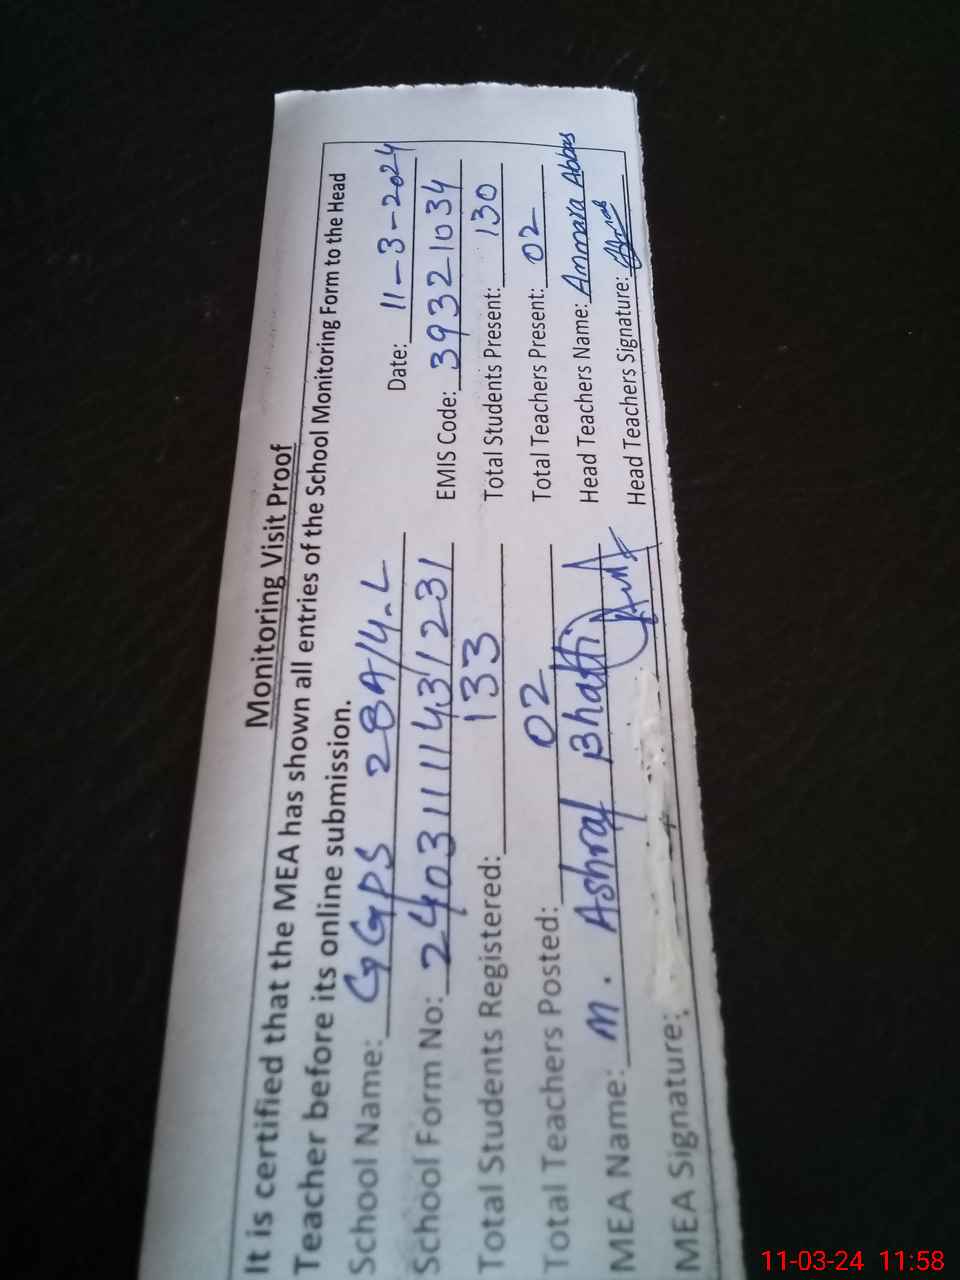 Monitoring Visit Proof
It is certified that the MEA has shown all entries of the School Monitoring Form to the Head
Teacher before its online submission.
School Name: GGPS 28A/14.L Date: 11-3-2024
School Form No: 24031111431231 EMIS Code: 39321034
Total Students Registered: 133 Total Students Present: 130
Total Teachers Posted: 02 Total Teachers Present: 02
MEA Name: M. Ashraf Bhatti Head Teachers Name: Ammara Abbas
MEA Signature: Head Teachers Signature:
11-03-24 11:58